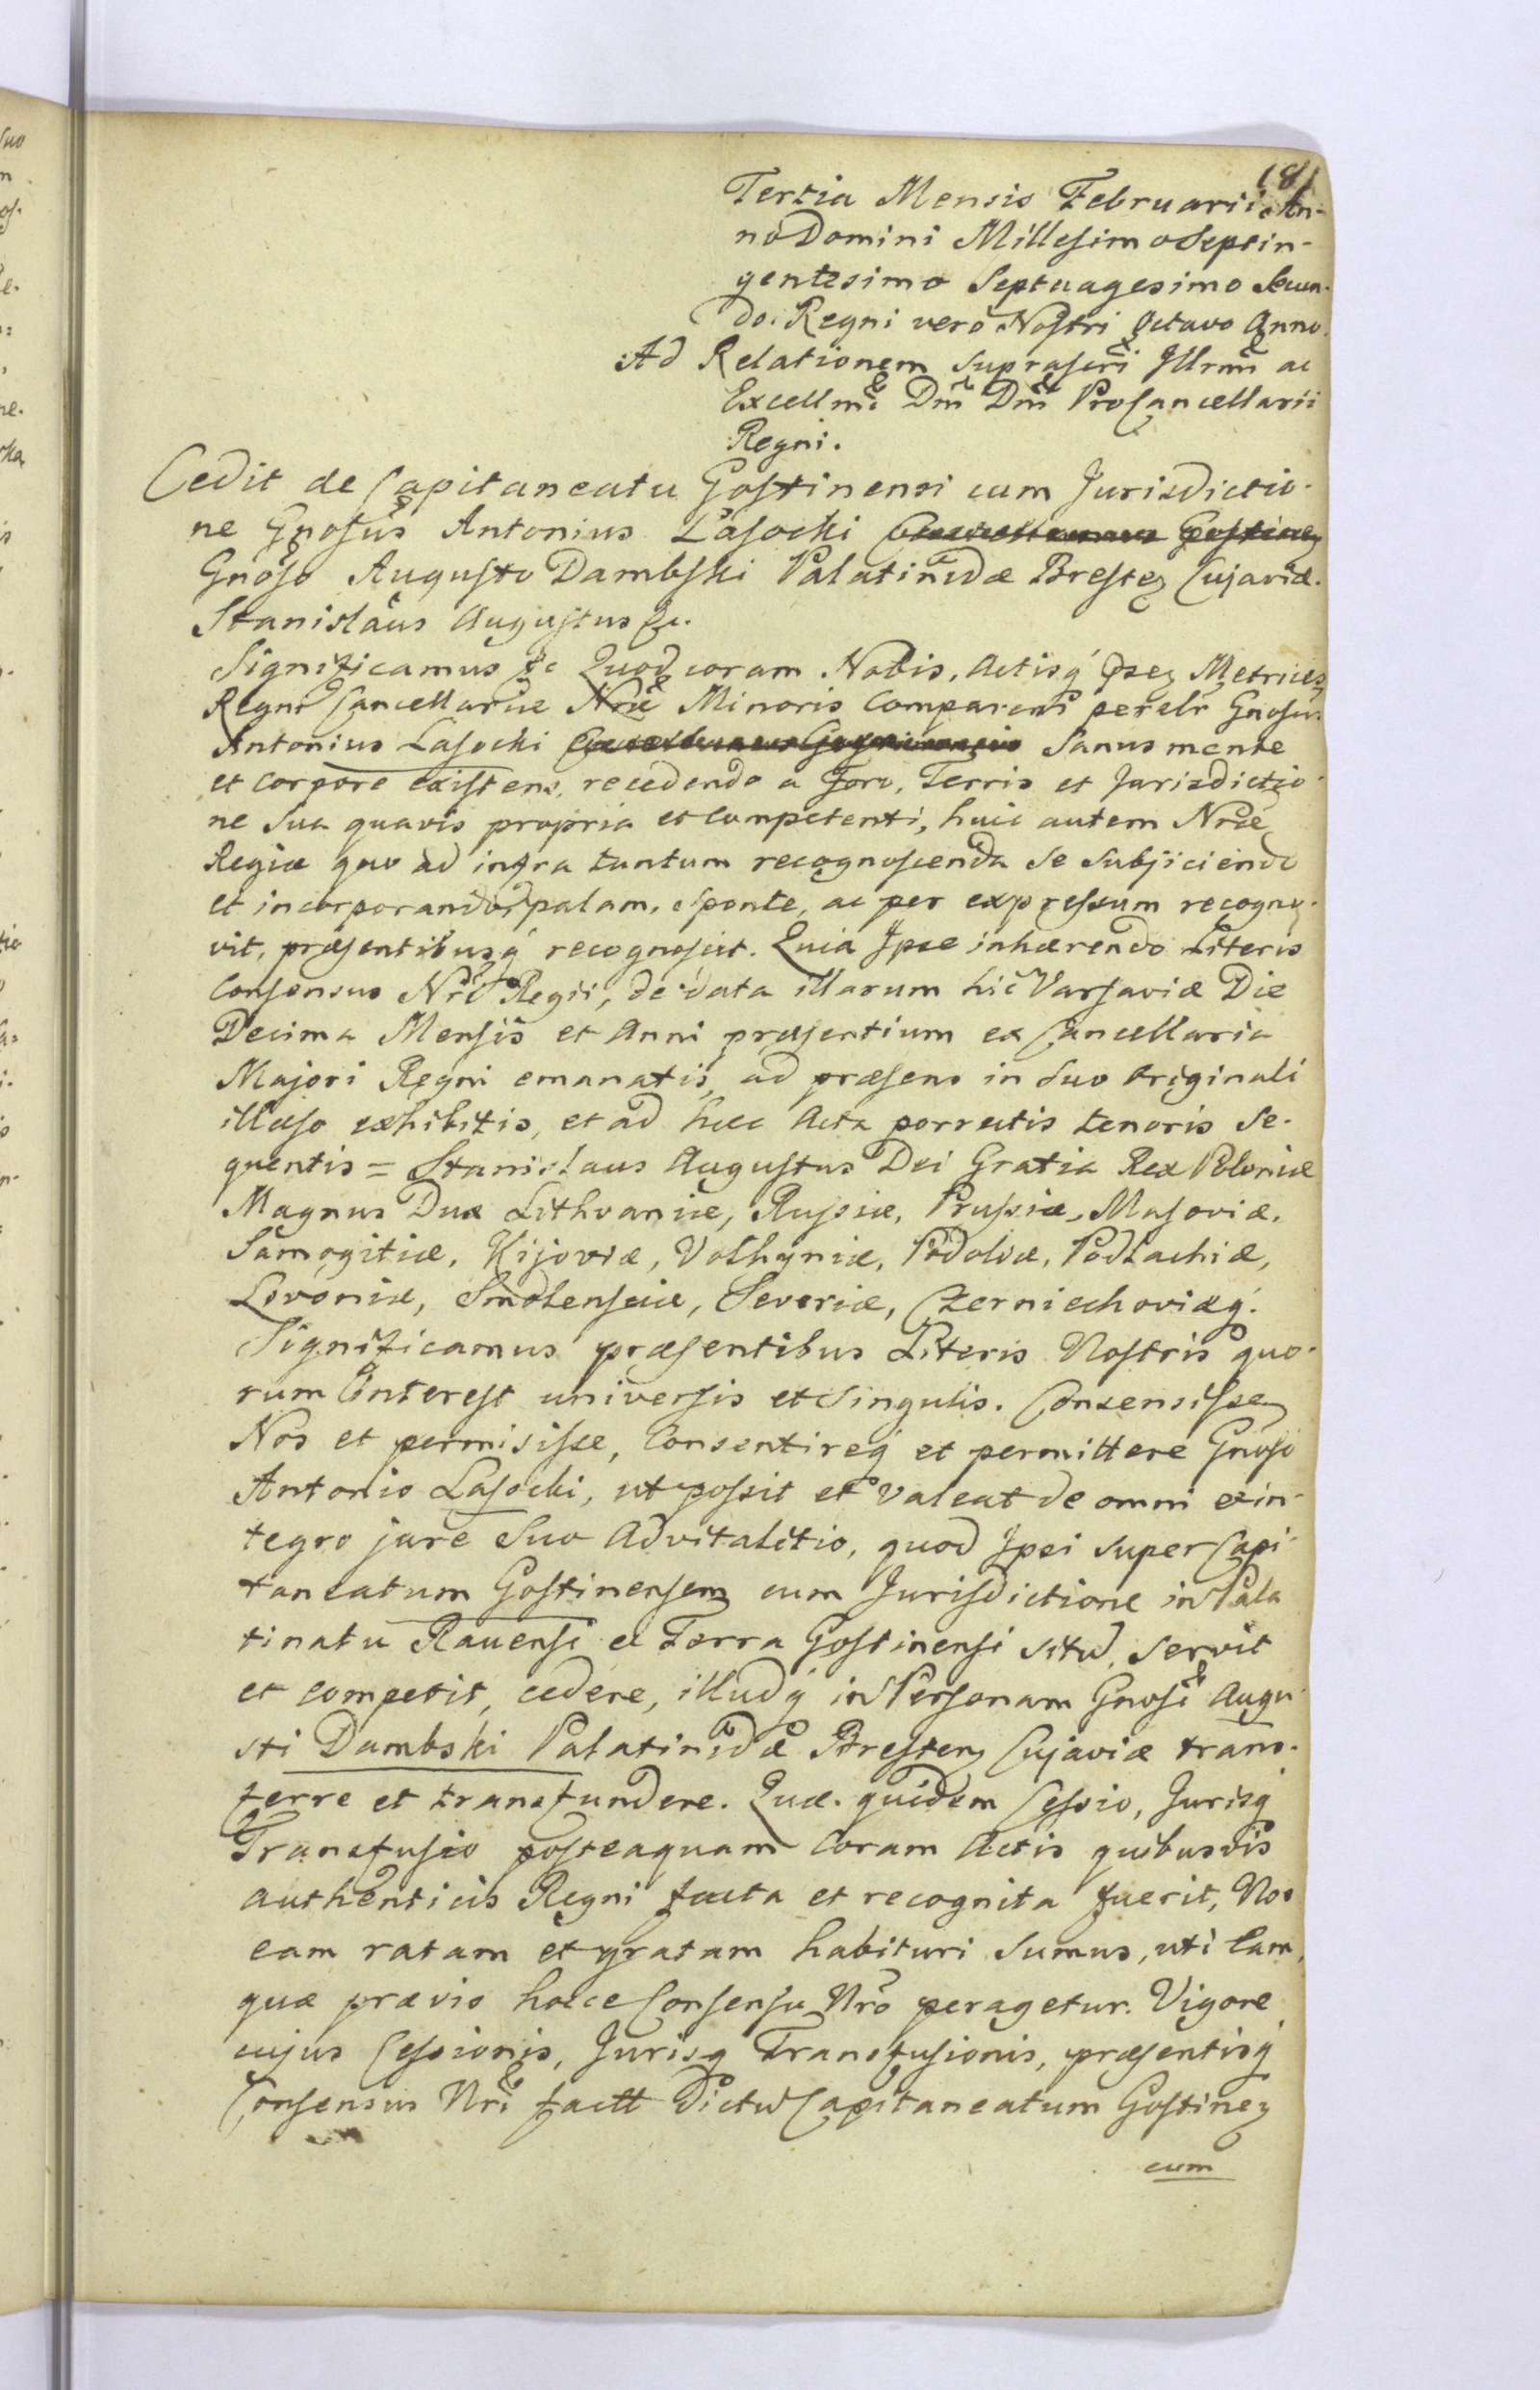 181
Tertia Mensis Februarii An-
no Domini Millesimo Septin-
gentesimo Septuagesimo Secun-
do. Regni vero Nostri Octavo Anno.
Ad Relationem suprascri Illrmi ac
Excellmi Dni Dni ProCancellarii
Regni.
Cedit de Capitaneatu Gostinensi cum Jurisdictio-
ne Gnosus Antonius Lasocki
Gnoso Augusto Dambski Palatinidæ Bresten Cujaviæ.
Stanislaus Augustus &c.
Significamus &c Quod coram Nobis, Actisq́ Metrices
Regni Cancellariæ Nræ Minoris Comparens perslr Gnosus
Antonius Lasocki Sanus mente
et corpore existens, recedendo a Foro, Terris et Jurisdictio-
ne Sua quavis propria et competenti, huic autem Nræ
Regiæ quo ad infra tantum recognoscenda se subjiciendo
et incorporando, palam, sponte, ac per expressum recogno-
vit, præsentibusq́ recognoscit. Quia Ipse inhærendo Literis
Consensus Nri Regii, de data illarum hic Varsaviæ Die
Decima Mensis et Anni præsentium ex Cancellaria
Majori Regni emanatis, ad præsens in suo Originali
illæso exhibitis, et ad hæc Acta porrectis tenoris Se-
quentis = Stanislaus Augustus Dei Gratia Rex Poloniæ
Magnus Dux Lithvaniæ, Russiæ, Prussiæ, Masoviæ,
Samogitiæ, Kijoviæ, Volhyniæ, Podoliæ, Podlachiæ,
Livoniæ, Smolensciæ, Severiæ, Czerniechoviæq́.
Significamus præsentibus Literis Nostris quo-
rum Interest universis et singulis. Consensisse
Nos et permisisse, Consentireq́ et permittere Gnoso
Antonio Lasocki, ut possit et valeat de omni et in-
tegro jure Suo Advitalitio, quod Ipsi super Capi-
taneatum Gostinensem cum Jurisdictione in Pala
tinatu Ravensi et Terra Gostinensi situm, servit
et competit, cedere, illudq́ in Personam Gnosi Augu-
sti Dambski Palatinidæ Bresten Cujaviæ trans-
ferre et transfundere. Quæ quidem Cessio, Jurisq́
Transfusio posteaquam Coram Actis quibusvis
authenticis Regni facta et recognita fuerit, Nos
eam ratam et gratam habituri sumus, uti eam,
quæ prævio hocce Consensu Nro peragetur. Vigore
cujus Cessionis, Jurisq́ Transfusionis, præsentisq́
Consensus Nri factt dictum Capitaneatum Gostinen
cum